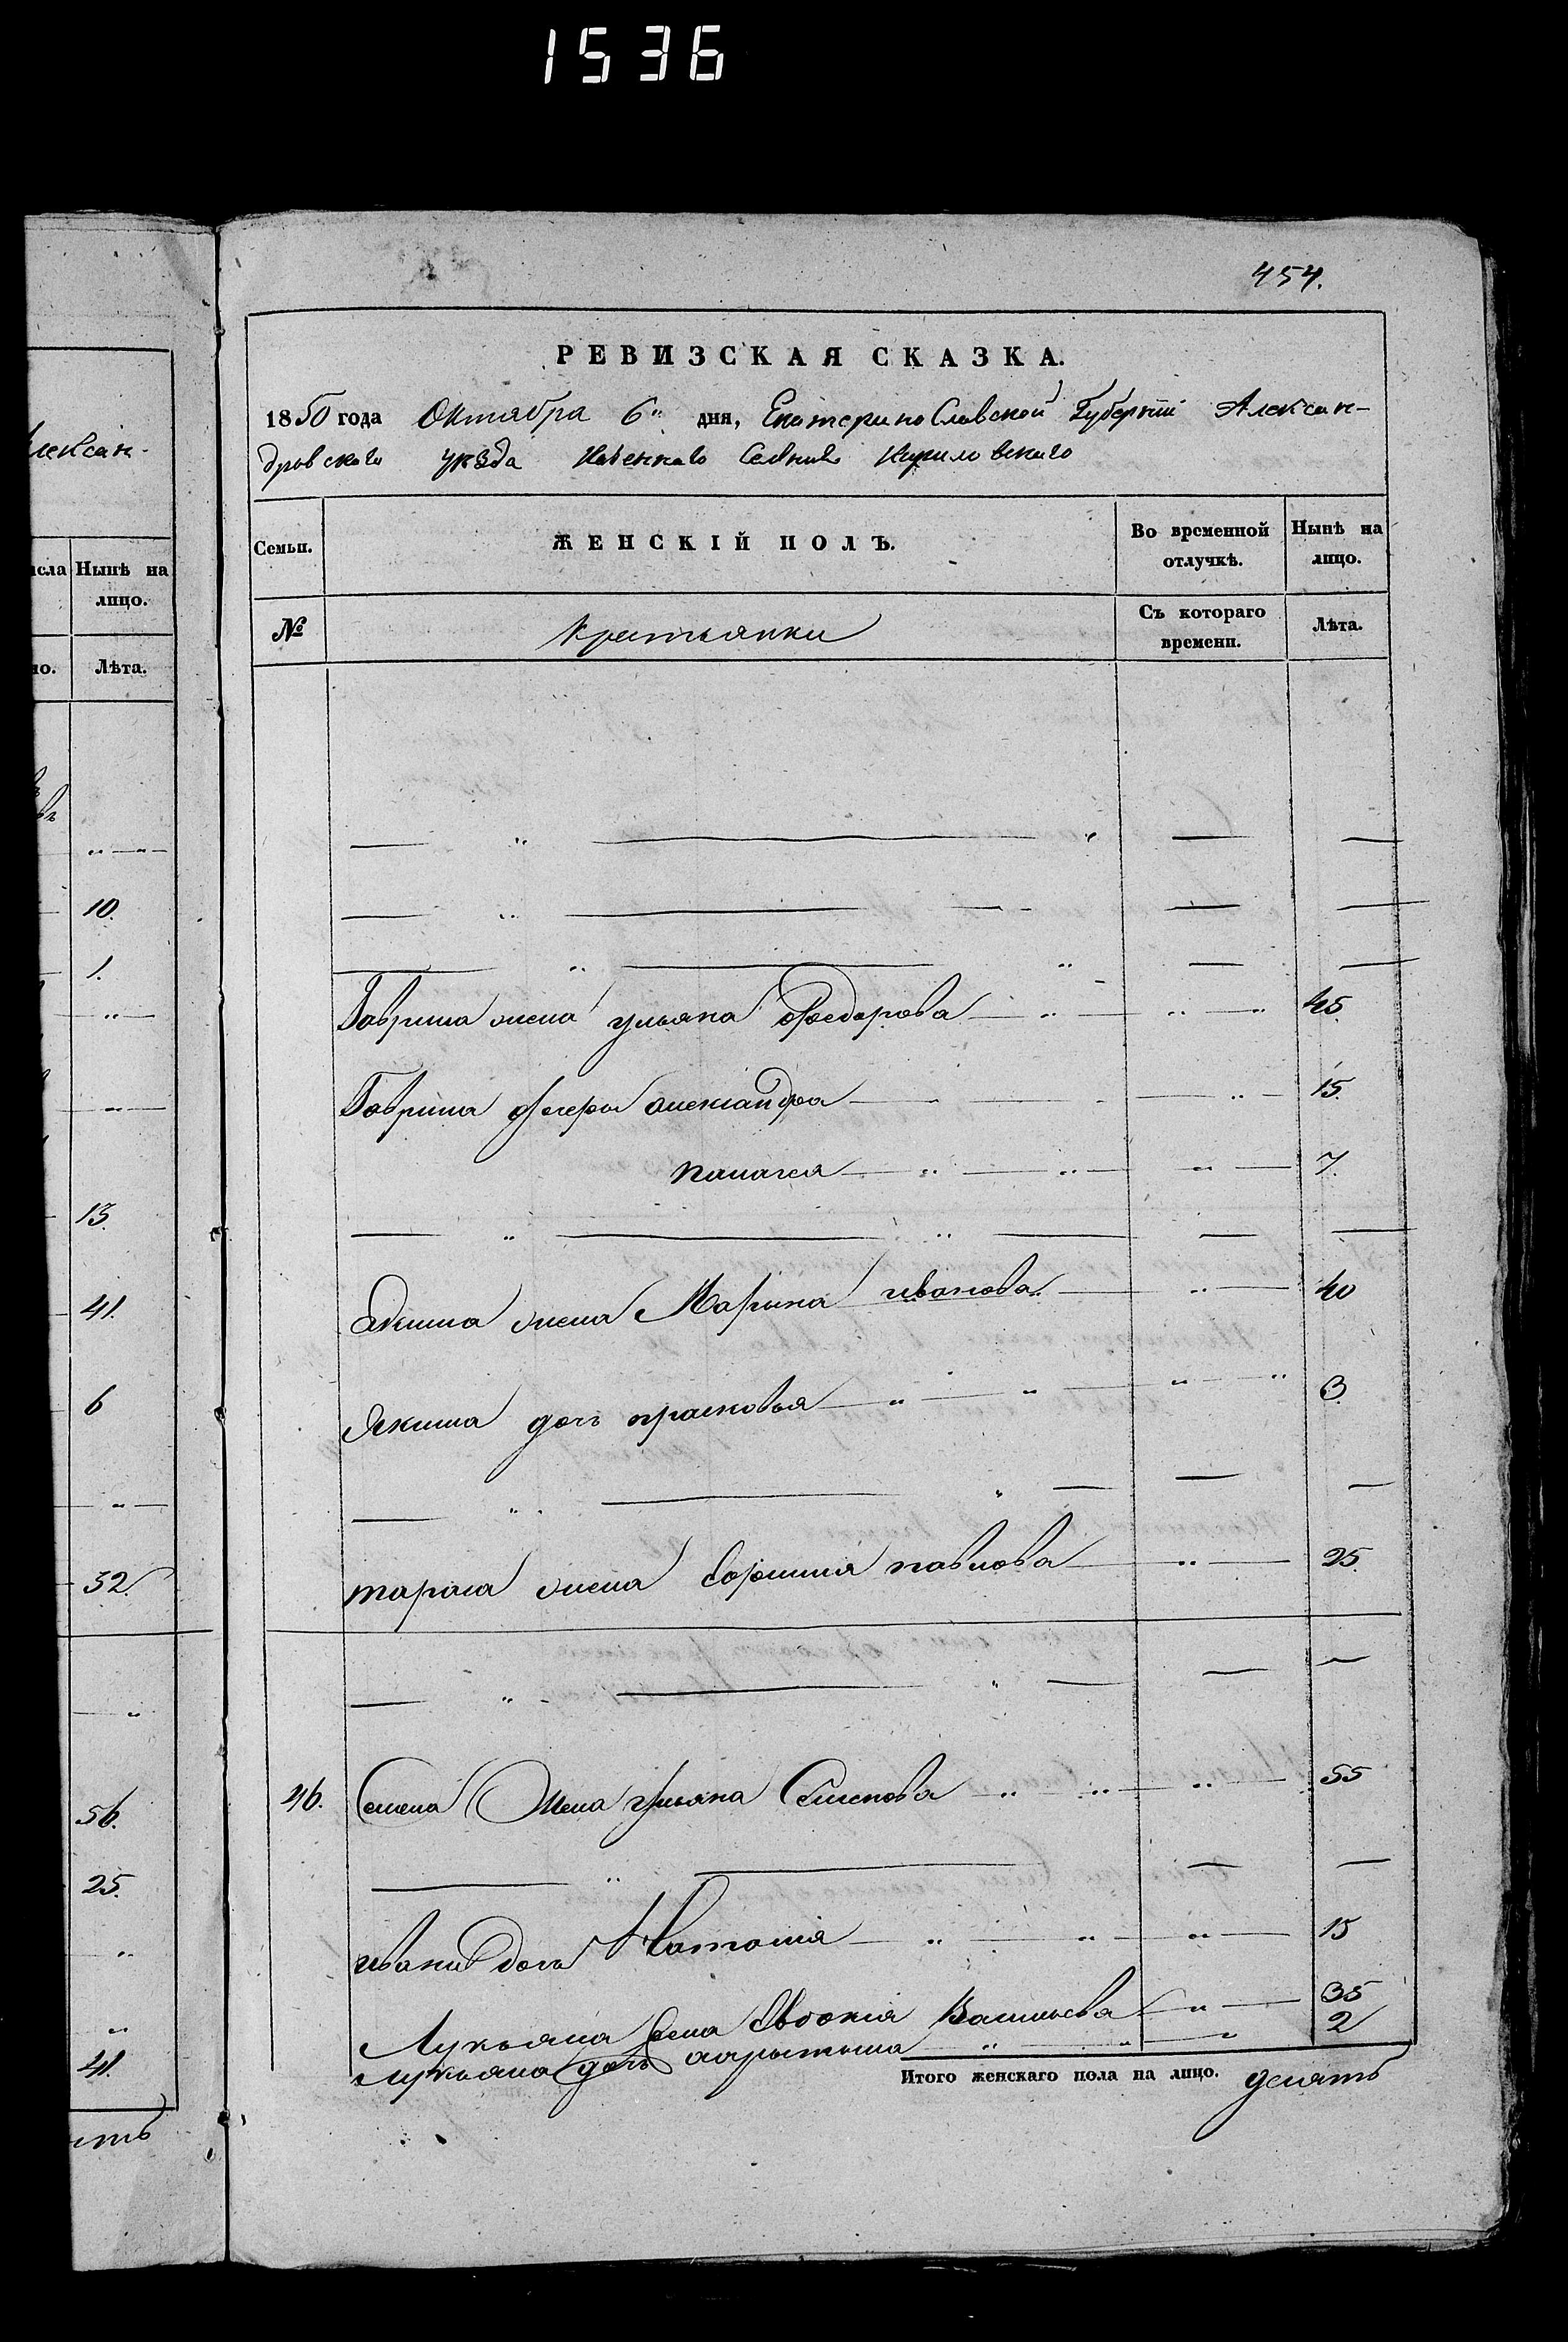 1536
лексан-
исла Нынѣ на
лицо.
но. Лѣта.
10.
1.
13.
41.
6
52.
56.
25.
41.
ять
454.
РЕВИЗСКАЯ СКАЗКА.
1850 года Октября 6" дня, Екатеринославской Губерніи Алексан-
дровскаго уезда Казеннаго Селенія Кириловскаго
Семьи. ЖЕНСКІЙ ПОЛЪ. Во временной отлучкѣ. Нынѣ на лицо.
№ Крестьянки Съ котораго времени. Лѣта.
Гаврила жена ульяна Федорова 45.
Гаврила дочери александра 15.
палагея 7.
Якима жена Марина иванова 40
Якима дочь прасковья 3.
тараса жена павлова 25.
46. Семена Жена ульяна Семенова 55
ивана дочь Наталія 15
Лукьяна жена Евдокія Васильева 35
лукьяна дочь 2
Итого женскаго пола на лицо. девять